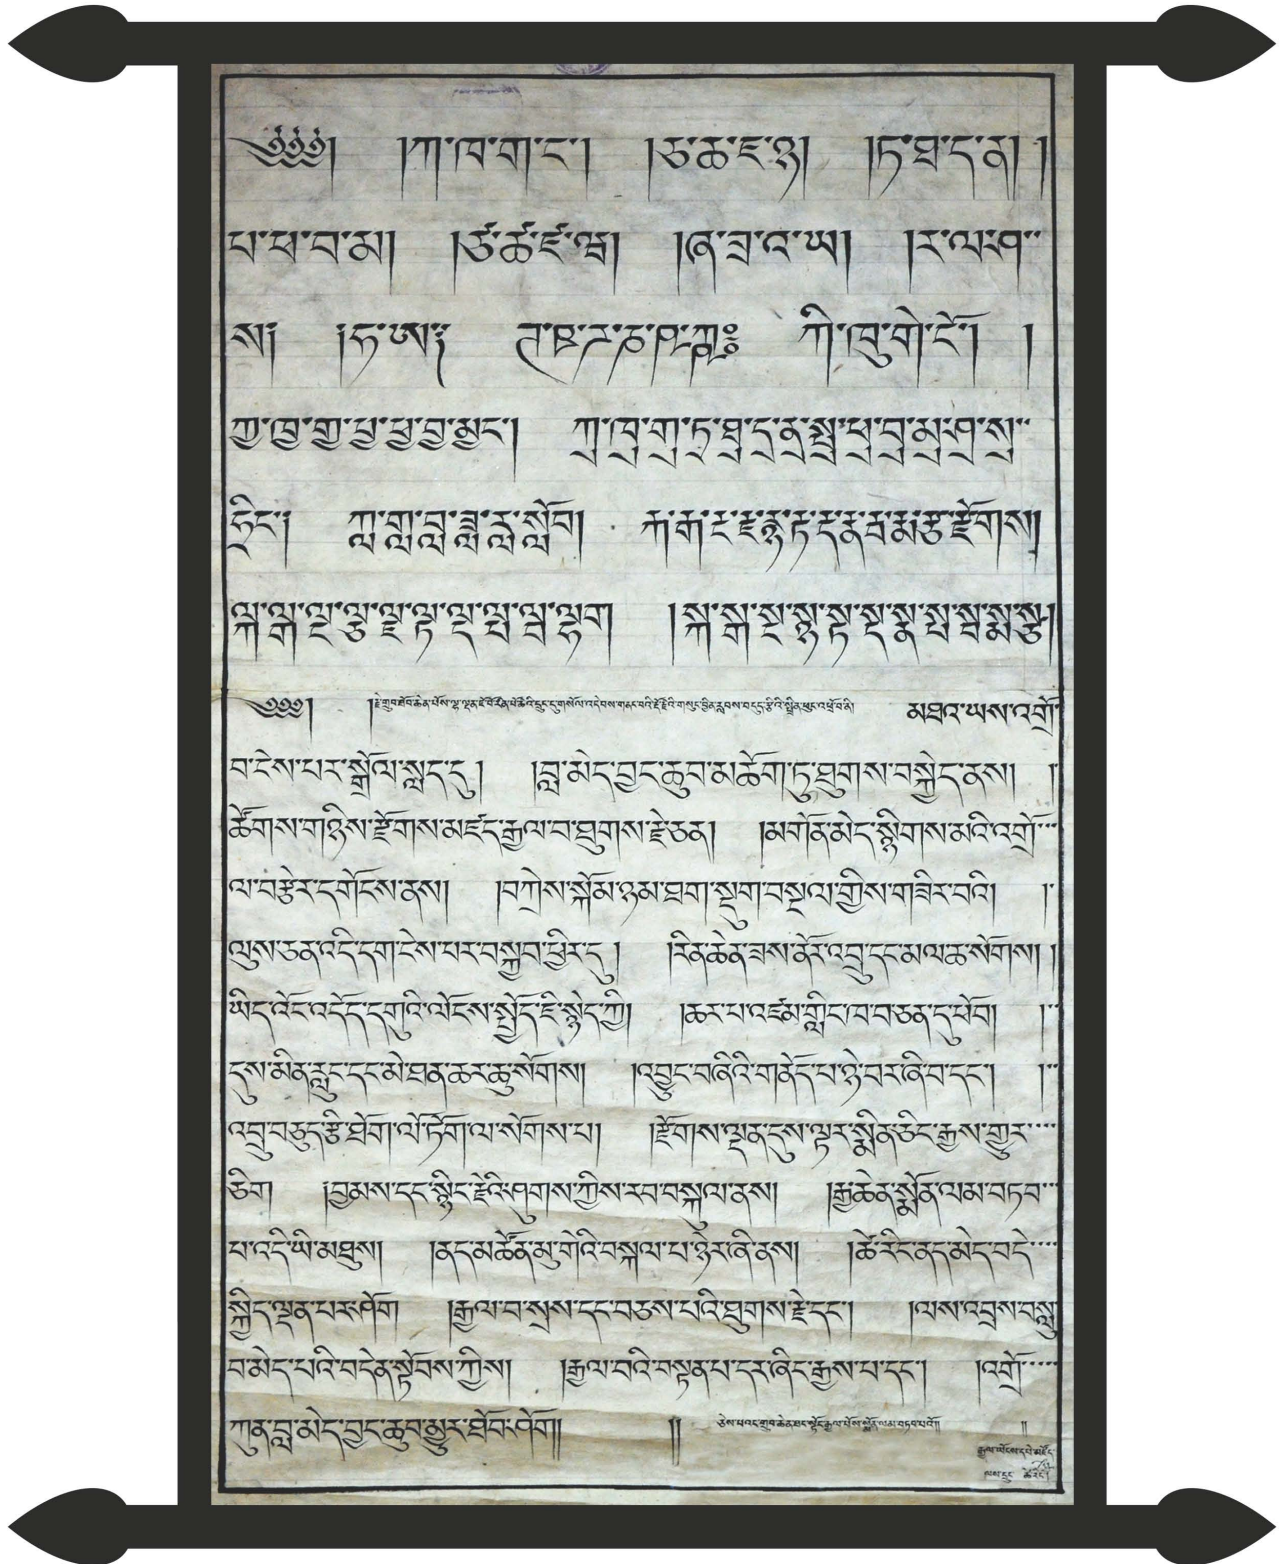 ༄༅༅། །ཀ་ཁ་ག་ང་། །ཅ་ཆ་ཇ་ཉ། །ཏ་ཐ་ད་ན། །
པ་ཕ་བ་མ། །ཙ་ཚ་ཛ་ཝ། །ཞ་ཟ་འ་ཡ། །ར་ལ་ཤ་
ས། །ཧ་ཨ། ཀི་ཁུ་གེ་ངོ། །
ཀྱ་ཁྱ་གྱ་པྱ་ཕྱ་བྱ་མྱང་། ཀྲ་ཁྲ་གྲ་ཏྲ་ཐྲ་དྲ་ནྲ་སྤྲ་ཕྲ་བྲ་མྲ་ཤྲ་སྲ་
ཧྲིང་། ཀླ་གླ་བླ་ཟླ་རླ་སློབ། རྐ་རྒ་རྔ་རྗ་རྙ་རྟ་རྡ་རྣ་རྦ་རྨ་རྩ་རྫོགས།
ལྐ་ལྒ་ལྔ་ལྕ་ལྗ་ལྟ་ལྡ་ལྤ་ལྦ་ལྷག །སྐ་སྒ་སྔ་སྙ་སྟ་སྡ་སྣ་སྤ་སྦ་སྨ་སྩ།
༄༅༅། མཐའ་ཡས་འགྲོ་
བ་ངེས་པར་སྒྲོལ་སླད་དུ། །བླ་མེད་བྱང་ཆུབ་མཆོག་ཏུ་ཐུགས་བསྐྱེད་ནས། །
ཚོགས་གཉིས་རྫོགས་མཛད་རྒྱལ་བ་ཐུགས་རྗེ་ཅན། །མགོན་མེད་སྙིགས་མའི་འགྲོ་
ལ་བརྩེར་དགོངས་ནས། །བཀྲེས་སྐོམ་ཉམ་ཐག་སྡུག་བསྔལ་གྱིས་གཟིར་བའི། །
ལུས་ཅན་འདི་དག་ངེས་པར་བསྐྱབ་ཕྱིར་དུ། །རིན་ཆེན་ཟས་ནོར་འབྲུ་དང་མལ་ཆ་སོགས། །
ཡིད་འོང་འདོད་དགུའི་ལོངས་སྤྱོད་ཇི་སྙེད་ཀྱི། །ཆར་པ་འཛམ་གླིང་ཁ་བ་ཅན་དུ་ཕོབ། །
དུས་མིན་རླུང་དང་མེ་ཐན་ཆར་ཆུ་སོགས། །འབྱུང་བཞིའི་གནོད་པ་ཉེ་བར་ཞི་བ་དང་། །
འབྲུ་བཅུད་རྩི་ཐོག་ལོ་ཏོག་ལ་སོགས་པ། །རྫོགས་ལྡན་དུས་ལྟར་སྨིན་ཅིང་རྒྱས་གྱུར་
ཅིག །བྱམས་དང་སྙིང་རྗེའི་ཤུགས་ཀྱིས་རབ་བསྐུལ་ནས། །རྒྱ་ཆེན་སྨོན་ལམ་བཏབ་
པ་འདི་ཡི་མཐུས། །ནད་མཚོན་མུ་གེའི་བསྐལ་པ་ཉེར་ཞི་ནས། །ཚེ་རིང་ནད་མེད་བདེ་
སྐྱིད་ལྡན་པར་ཤོག །རྒྱལ་བ་སྲས་དང་བཅས་པའི་ཐུགས་རྗེ་དང་། །ལས་འབྲས་བསླུ
བ་མེད་པའི་བདེན་སྟོབས་ཀྱིས། །རྒྱལ་བའི་བསྟན་པ་དར་ཞིང་རྒྱས་པ་དང་། །འགྲོ་
ཀུན་བླ་མེད་བྱང་ཆུབ་མྱུར་ཐོབ་ཤོག། ། ཅེས་པའང་གྲུབ་ཆེན་ཐང་སྟོང་རྒྱལ་པོས་སྨོན་ལམ་བཏབ་པའོ།། །།